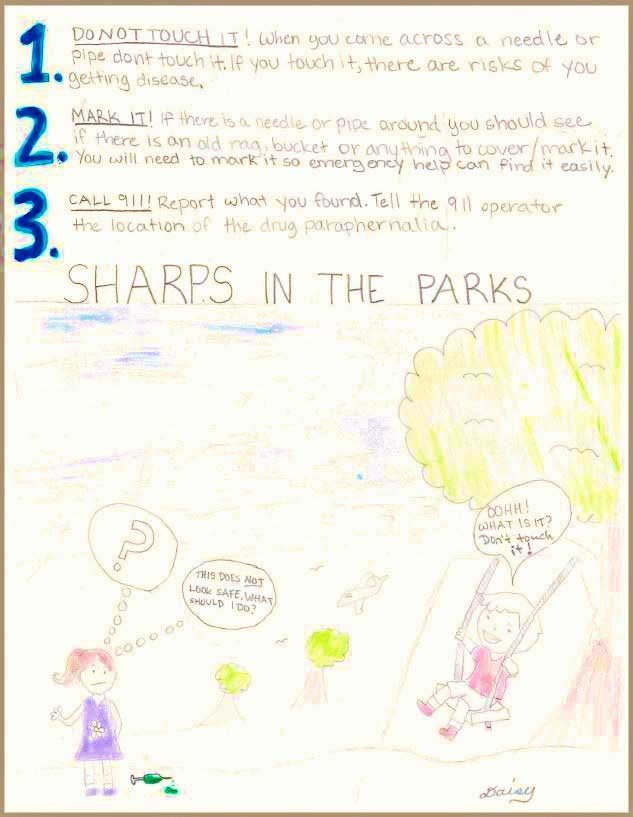 1. DO NOT TOUCH IT! When you come across a needle or
pipe dont touch it. If you touch it, there are risks of you
getting disease.
2. MARK IT! If there is a needle or pipe around you should see
if there is an old rag, bucket or anything to cover/mark it.
You will need to mark it so emergency help can find it easily.
3. CALL 911! Report what you found. Tell the 911 operator
the location of the drug paraphernalia.
SHARPS IN THE PARKS
OOHH!
WHAT IS IT?
Don't touch
it!
?
THIS DOES NOT
LOOK SAFE. WHAT
SHOULD I DO?
Daisy